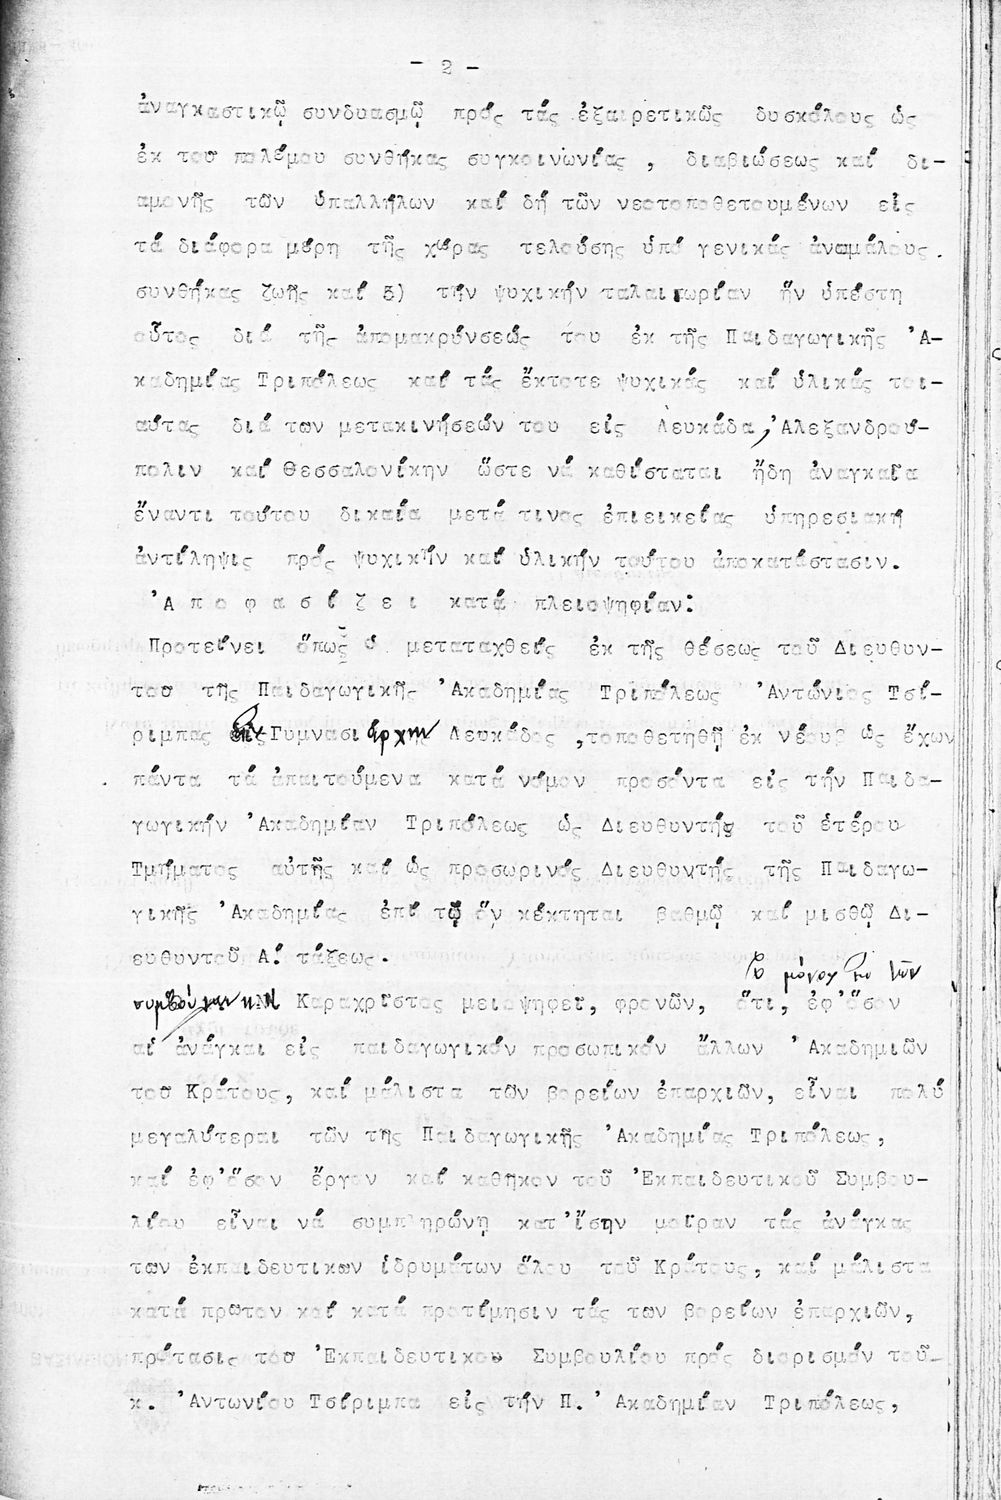 - 2 -
ἀναγκαστικῷ συνδυασμῷ πρός τάς ἐξαιρετικῶς δυσκόλους ὡς
ἐκ τοῦ πολέμου συνθήκας συγκοινωνίας , διαβιώσεως καί δι-
αμονῆς τῶν ὑπαλλήλων καί δή τῶν νεοτοποθετουμένων εἰς
τά διάφορα μέρη τῆς χώρας τελούσης ὑπό γενικάς ἀνωμάλους.
συνθήκας ζωῆς καί 5) τήν ψυχικήν ταλαιπωρίαν ἥν ὑπέστη
οὗτος διά τῆς ἀπομακρύνσεώς του ἐκ τῆς Παιδαγωγικῆς Ἀ-
καδημίας Τριπόλεως καί τάς ἔκτοτε ψυχικάς καί ὑλικάς τοι-
αύτας διά των μετακινήσεών του εἰς Λευκάδα, Ἀλεξανδρού-
πολιν καί Θεσσαλονίκην ὥστε νά καθίσταται ἤδη ἀναγκαία
ἔναντι τούτου δικαία μετά τινος ἐπιεικείας ὑπηρεσιακή
ἀντίληψις πρός ψυχικήν καί ὑλικήν τούτου ἀποκατάστασιν.
Ἀ π ο φ α σ ί ζ ε ι κατά πλειοψηφίαν:
Προτείνει ὅπως ὁ μεταταχθείς ἐκ τῆς θέσεως τοῦ Διευθυν-
τοῦ τῆς Παιδαγωγικῆς Ἀκαδημίας Τριπόλεως Ἀντώνιος Τσί-
ριμπας Γυμνασιάρχην Λευκάδος ,τοποθετηθῇ ἐκ νέουβ ὡς ἔχων
πάντα τά ἀπαιτούμενα κατά νόμον προσόντα εἰς τήν Παιδα-
γωγικήν Ἀκαδημίαν Τριπόλεως ὡς Διευθυντής τοῦ ἑτέρου
Τμήματος αὐτῆς καί ὡς προσωρινός Διευθυντής τῆς Παιδαγω-
γικῆς Ἀκαδημίας ἐπί τῷ ὅν κέκτηται βαθμῷ καί μισθῷ Δι-
ευθυντοῦ Α! τάξεως.
Καραχρίστος μειοψηφεῖ, φρονῶν, ὅτι, ἐφ'ὅσον
αἱ ἀνάγκαι εἰς παιδαγωγικόν προσωπικόν ἄλλων Ἀκαδημιῶν
τοῦ Κράτους, καί μάλιστα τῶν βορείων ἐπαρχιῶν, εἶναι πολύ
μεγαλύτεραι τῶν τῆς Παιδαγωγικῆς Ἀκαδημίας Τριπόλεως,
καί ἐφ'ὅσον ἔργον καί καθῆκον τοῦ Ἐκπαιδευτικοῦ Συμβου-
λίου εἶναι νά συμπληρώνῃ κατ'ἴσην μοῖραν τάς ἀνάγκας
των ἐκπαιδευτικων ἱδρυμάτων ὅλου τοῦ Κράτους, καί μάλιστα
κατά πρῶτον καί κατά προτίμησιν τάς των βορείων ἐπαρχιῶν,
πρότασις τοῦ Ἐκπαιδευτικου Συμβουλίου πρός διορισμόν τοῦ-
κ. Ἀντωνίου Τσίριμπα εἰς τήν Π. Ἀκαδημίαν Τριπόλεως,